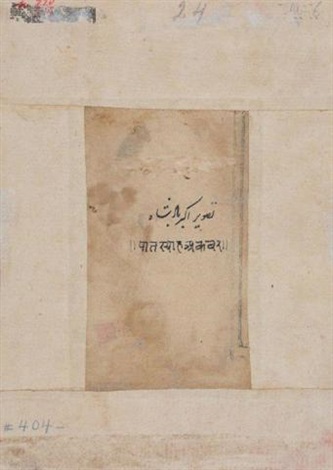 24
تصویر اکبر بادشاه
॥पातस्याह अकबर॥
=404-